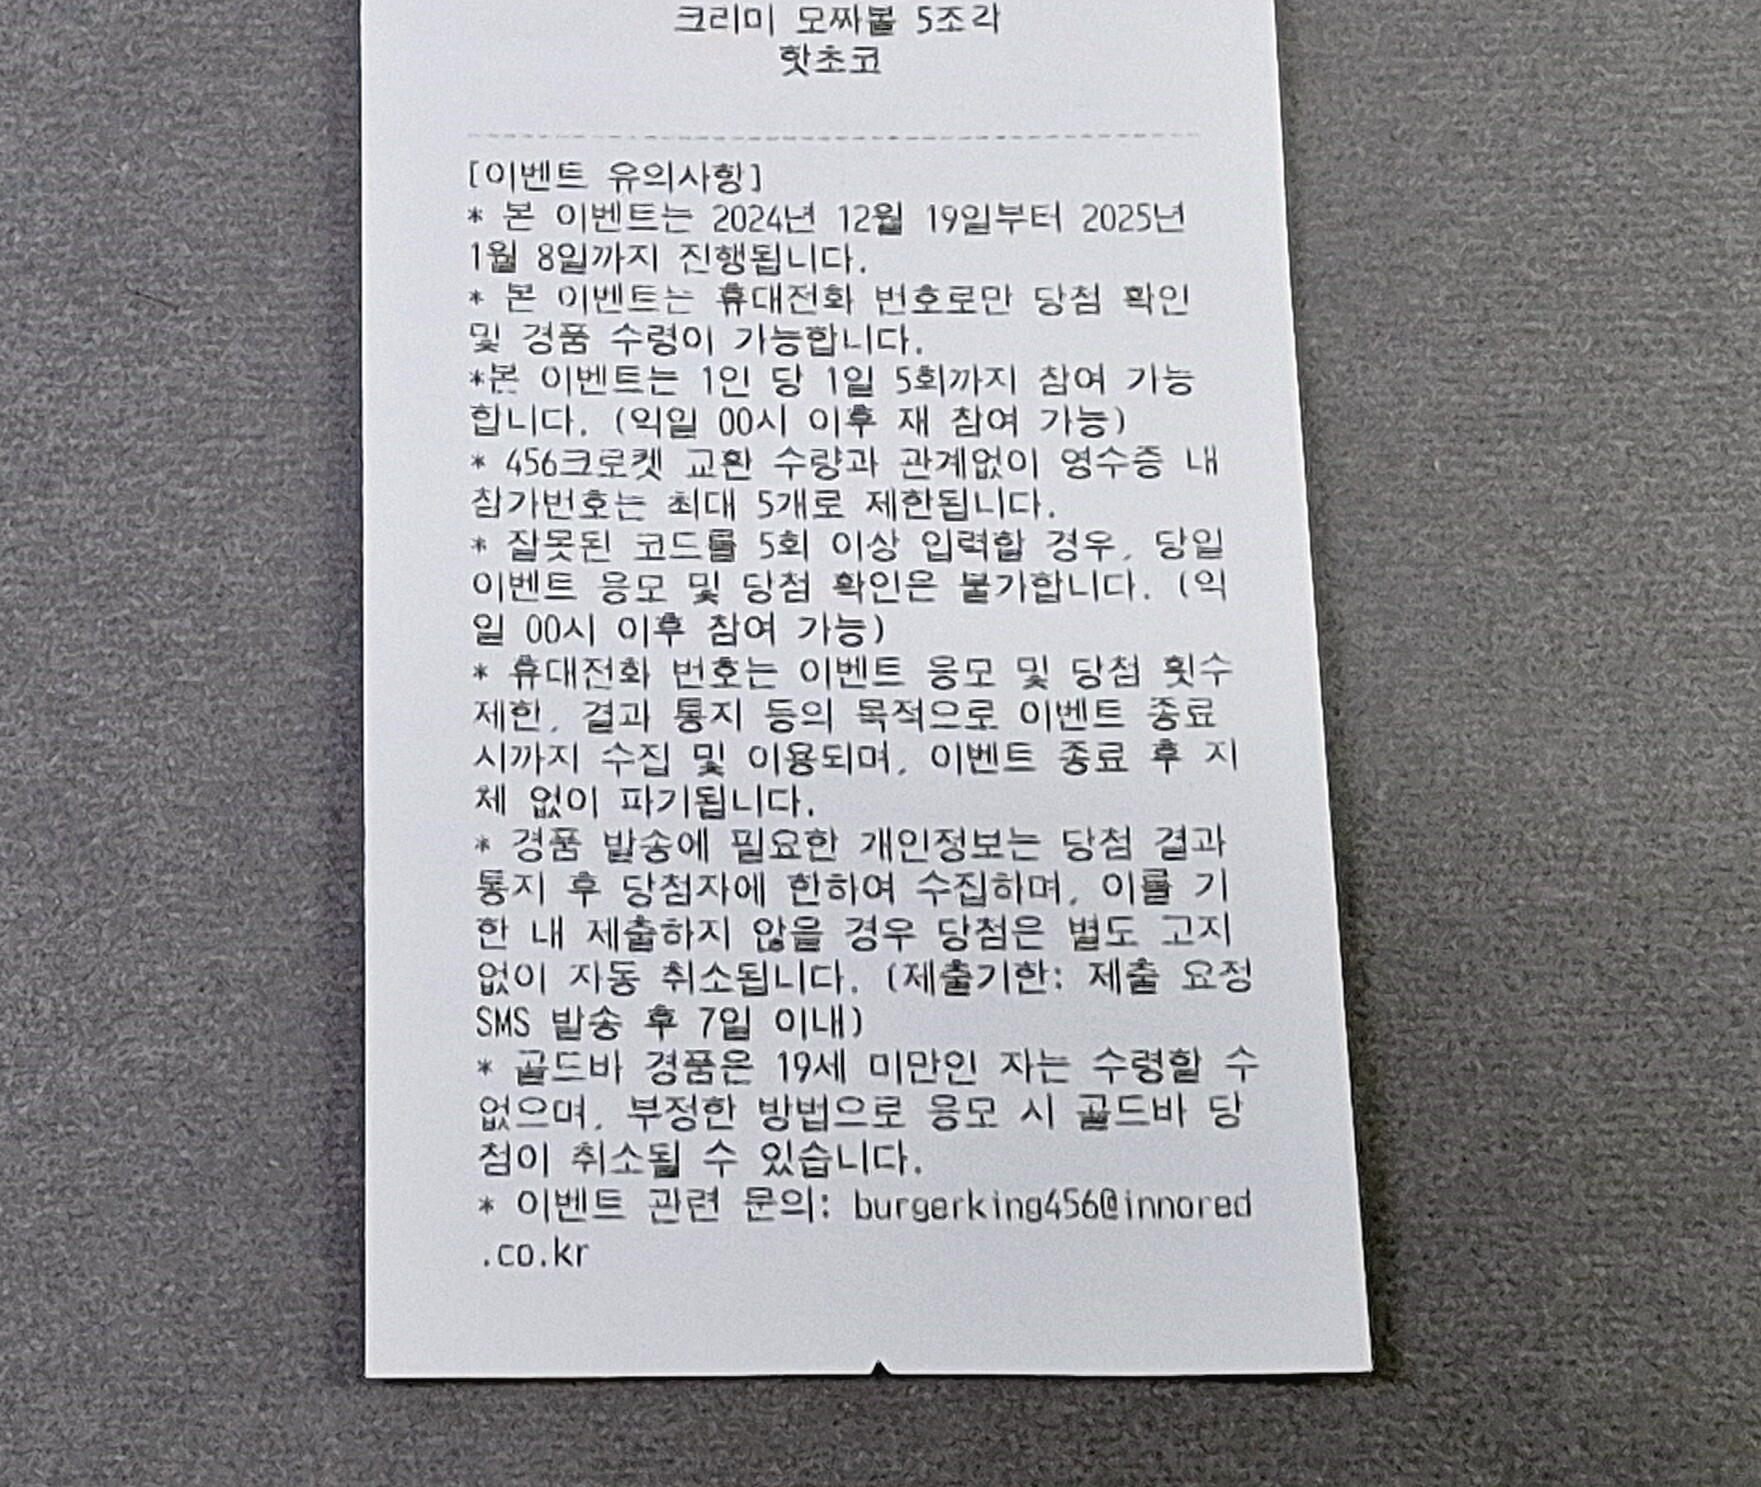 크리미 모짜볼 5조각
핫초코
[이벤트 유의사항]
* 본 이벤트는 2024년 12월 19일부터 2025년
1월 8일까지 진행됩니다.
* 본 이벤트는 휴대전화 번호로만 당첨 확인
및 경품 수령이 가능합니다.
*본 이벤트는 1인 당 1일 5회까지 참여 가능
합니다. (익일 00시 이후 재 참여 가능)
* 456크로켓 교환 수량과 관계없이 영수증 내
참가번호는 최대 5개로 제한됩니다.
* 잘못된 코드를 5회 이상 입력할 경우, 당일
이벤트 응모 및 당첨 확인은 불가합니다. (익
일 00시 이후 참여 가능)
* 휴대전화 번호는 이벤트 응모 및 당첨 횟수
제한, 결과 통지 등의 목적으로 이벤트 종료
시까지 수집 및 이용되며, 이벤트 종료 후 지
체 없이 파기됩니다.
* 경품 발송에 필요한 개인정보는 당첨 결과
통지 후 당첨자에 한하여 수집하며, 이를 기
한 내 제출하지 않을 경우 당첨은 별도 고지
없이 자동 취소됩니다. (제출기한: 제출 요정
SMS 발송 후 7일 이내)
* 골드바 경품은 19세 미만인 자는 수령할 수
없으며, 부정한 방법으로 응모 시 골드바 당
첨이 취소될 수 있습니다.
* 이벤트 관련 문의: burgerking456@innored
.co.kr